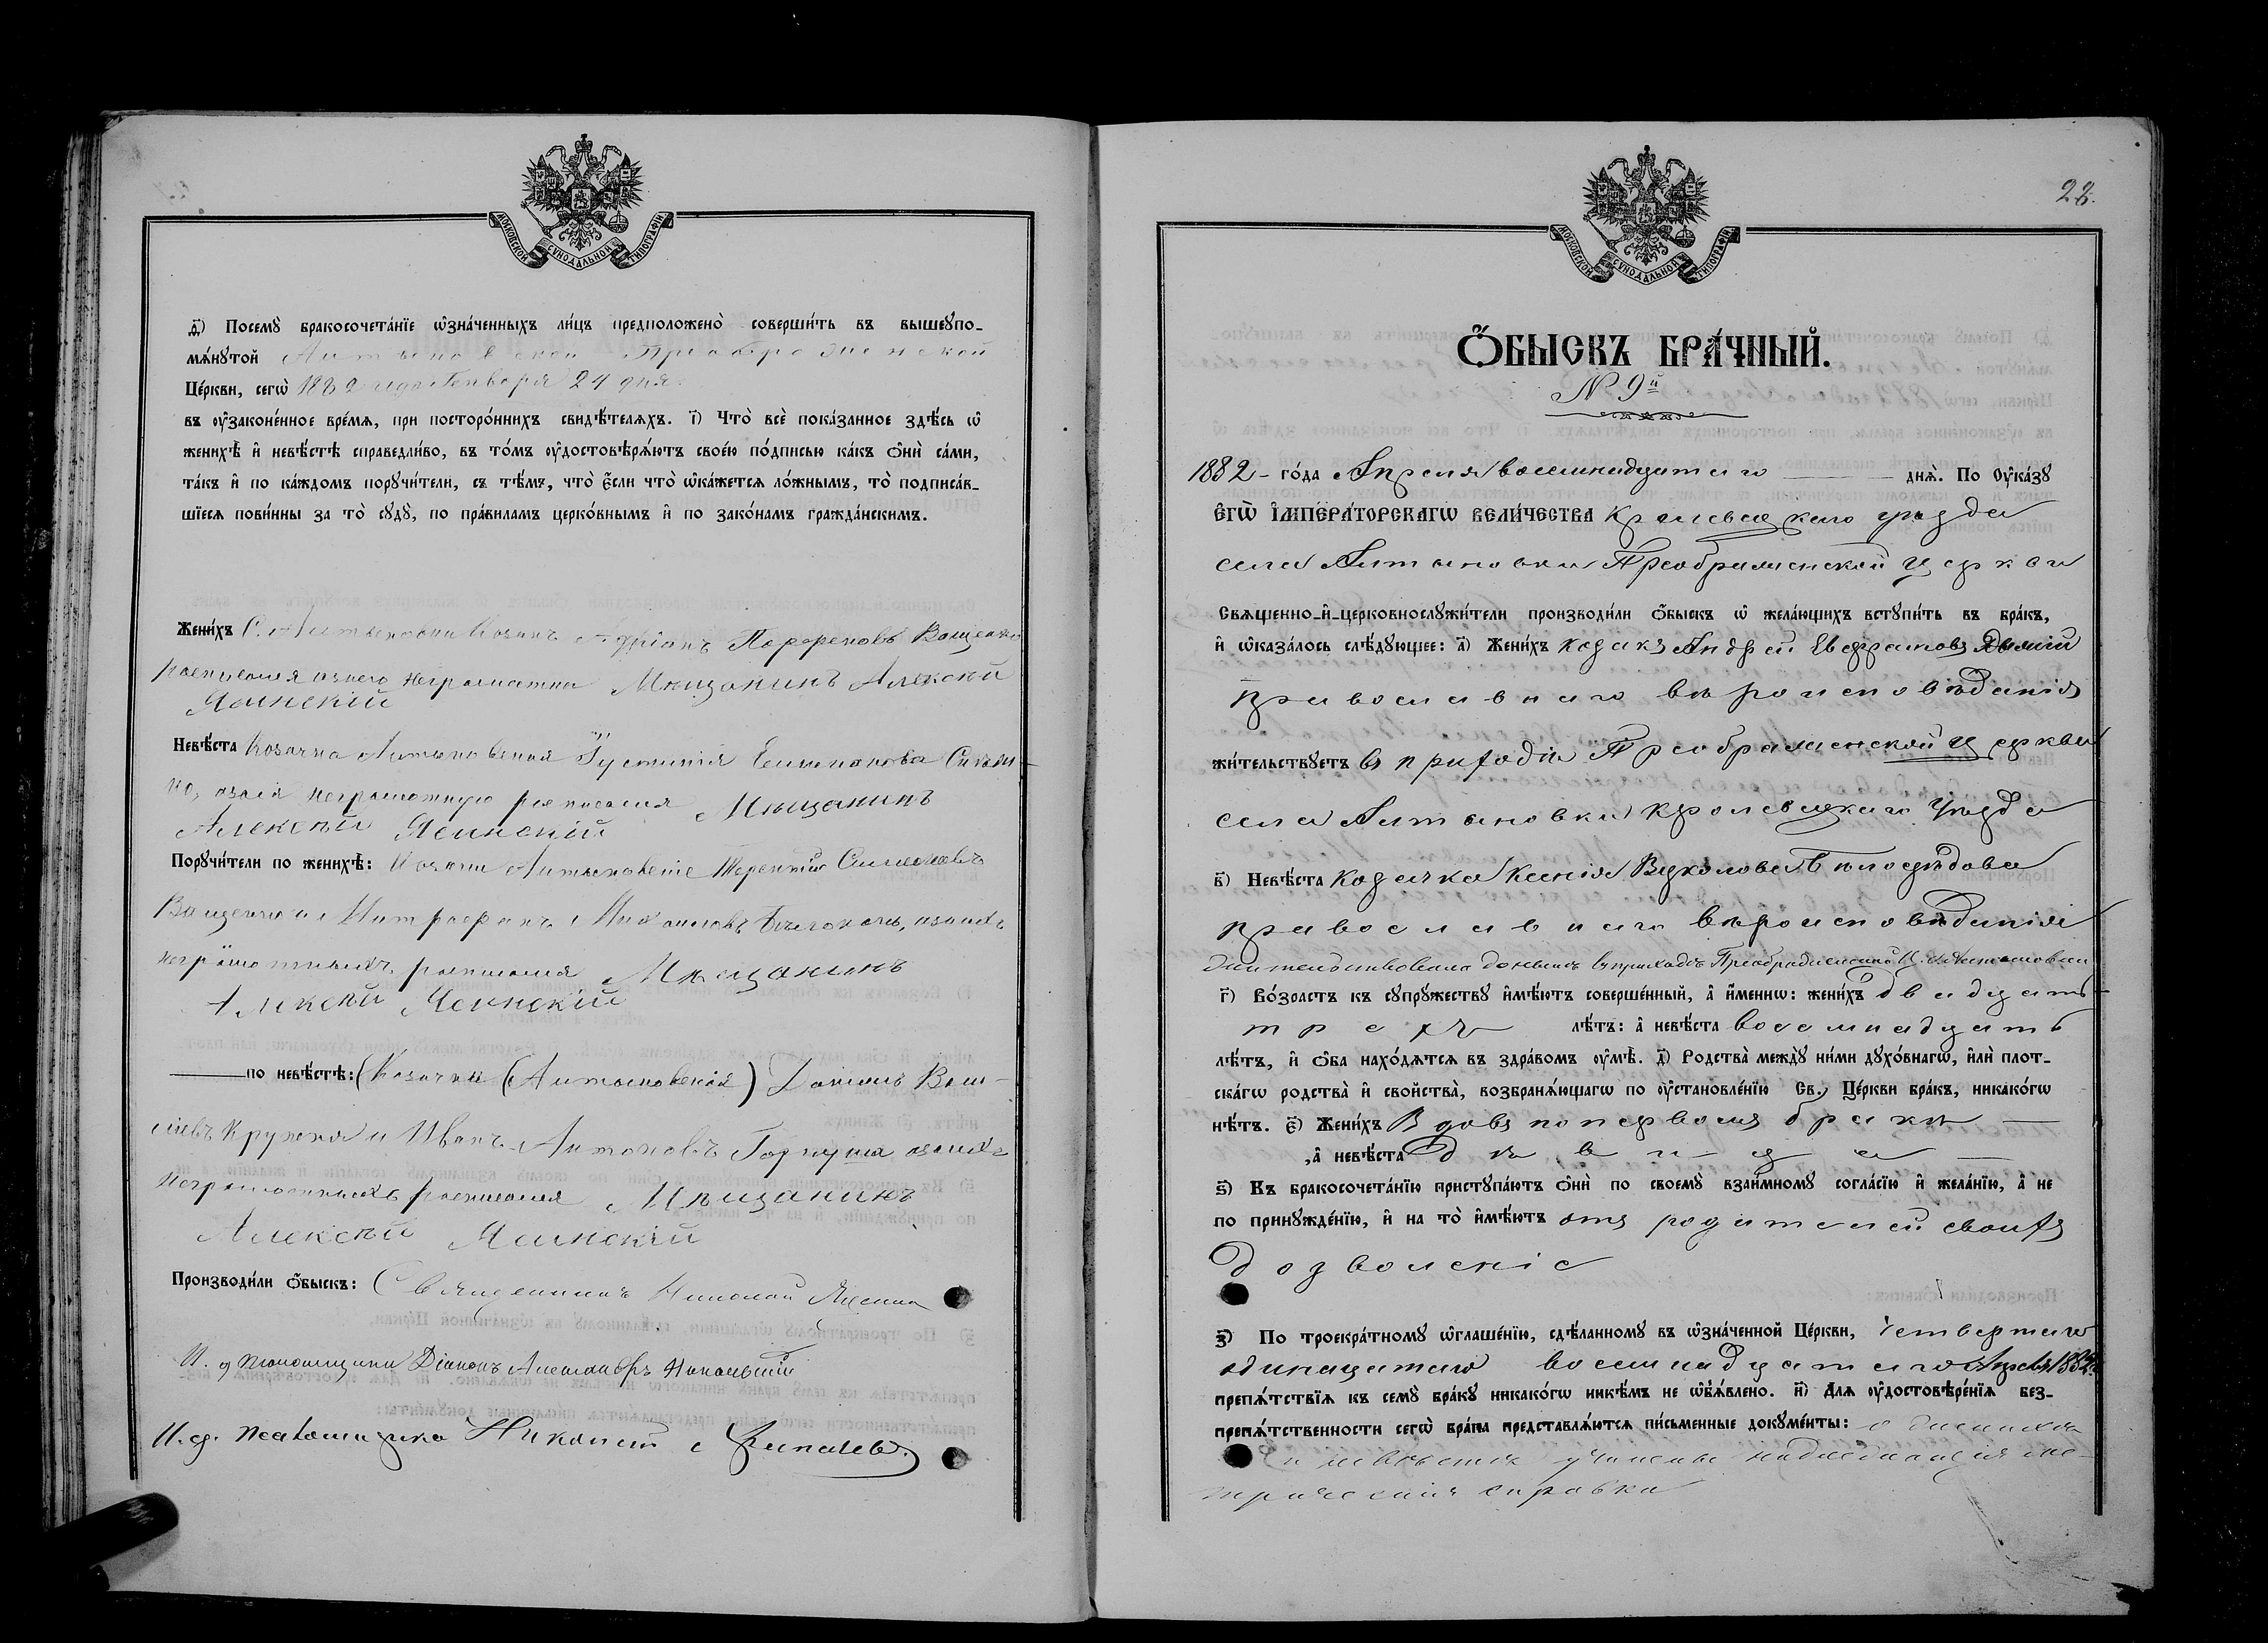 МОСКОВСКОЙ СУНОДАЛЬНОЙ ТИПОГРАФІИ
д҃) Посемꙋ̀ бракосочета́нїе ѡ҆зна́ченныхъ ли́цъ предположено̀ соверши́ть въ вышеꙋпо-
мѧ́нꙋтой Антыновской Преображенской
Це́ркви, сегѡ̀ 1882 года Генваря 24 дня
въ ᲂу҆законе́нное вре́мѧ, при посторо́ннихъ свидѣ́телѧхъ. і҃) Что̀ всѐ пока́занное здѣ́сь ѡ҆
женихѣ̀ и҆ невѣ́стѣ справедли́во, въ то́мъ ᲂу҆достовѣрѧ́ютъ свое́ю по́дписью ка́къ ѻ҆нѝ са́ми,
та́къ и҆ по ка́ждомъ порꙋчи́тели, съ тѣ́мъ, что̀ є҆́сли что̀ ѡ҆ка́жетсѧ ло́жнымъ, то̀ подписа́в-
шїесѧ пови́нны за то̀ сꙋдꙋ̀, по пра́виламъ церко́внымъ и҆ по зако́намъ гражда́нскимъ.
Жени́хъ С. Антыновки Козакъ Адріанъ Парфеновъ Ващенко
росписался оного неграматна Мѣщанинъ Алексѣй
Ясинскій
Невѣ́ста Козачка Антыновская Іустинія
неграмотную росписался Мѣщанинъ
Алексѣй Ясинскій
Порꙋчи́тели по женихѣ̀: Козаки Антыновскіе Терентій Симоновъ
Ващенко и Митрофанъ Михаиловъ Бѣлоконь,
неграмотныхъ росписался Мѣщанинъ
Алексѣй Ясинскій
по невѣ́стѣ: (Козаки (Антыновскія) Даніилъ Васи-
ліевъ и Иванъ Антоновъ
неграмотныхъ росписался Мѣщанинъ
Алексѣй Ясинскій
Производи́ли ѻ҆́быскъ: Священникъ Николай
И. д Псаломщика Діаконъ Александръ
И. д. псаломщика
МОСКОВСКОЙ СУНОДАЛЬНОЙ ТИПОГРАФІИ
22.
Ѻ҆́БЫСКЪ БРА́ЧНЫЙ.
№ 9й
1882 - го́да Апреля восемнадцатаго днѧ̀. По ᲂу҆ка́зꙋ
Є҆гѡ̀ І҆мпера́торскагѡ вели́чества Кролевецкаго уезда
села Антыновки Преображенской церкви
Свѧще́нно-и҆-церковнослꙋжи́тели производи́ли ѻ҆́быскъ ѡ҆ жела́ющихъ встꙋпи́ть въ бра́къ,
и҆ ѡ҆каза́лось слѣ́дꙋющее: а҃) Жени́хъ козакъ Андрей Евфратовъ
православнаго вѣроисповѣданія
жи́тельствꙋетъ въ приходѣ Преображенской церкви
села Антыновки Кролевецкаго Уѣзда
в҃) Невѣ́ста козачка Ксенія Вуколова
православнаго вѣроисповѣданія
жительствовала донынѣ въ приходѣ Преображенской Ц. с. Антыновки
г҃) Во́зрастъ къ сꙋпрꙋ́жествꙋ и҆мѣ́ютъ соверше́нный, а҆ и҆́меннѡ: жени́хъ двадцать
трехъ лѣ́тъ: а҆ невѣ́ста восемнадцать
лѣ́тъ, и҆ ѻ҆́ба нахо́дѧтсѧ въ здра́вомъ ᲂу҆мѣ̀. д҃) Родства̀ междꙋ̀ ни́ми дꙋхо́внагѡ, и҆лѝ плот-
ска́гѡ родства̀ и҆ свойства̀, возбранѧ́ющагѡ по ᲂу҆становле́нїю Св. Це́ркви бра́къ, никако́гѡ
нѣ́тъ. є҃) Жени́хъ Вдовъ по первомъ бракѣ
, а҆ невѣ́ста дѣвица
ѕ҃) Въ бракосочета́нїю пристꙋпа́ютъ ѻ҆нѝ по своемꙋ̀ взаи́мномꙋ согла́сїю и҆ жела́нїю, а҆ не
по принꙋжде́нїю, и҆ на то̀ и҆мѣ́ютъ отъ родителей своихъ
дозволеніе
з҃) По троекра́тномꙋ ѡ҆глаше́нїю, сдѣ́ланномꙋ въ ѡ҆зна́ченной Це́ркви, четвертаго
одинацатаго восемнадцатаго Апреля 1882
препѧ́тствїѧ къ семꙋ̀ бра́кꙋ никако́гѡ никѣ́мъ не ѡ҆б̾ѧ́влено. и҃) Длѧ ᲂу҆достовѣре́нїѧ без-
препѧ́тственности сегѡ̀ бра́ка представлѧ́ютсѧ пи́сьменные докꙋме́нты: о женихѣ
и невѣстѣ учинена надлежащая ме-
трическая справка